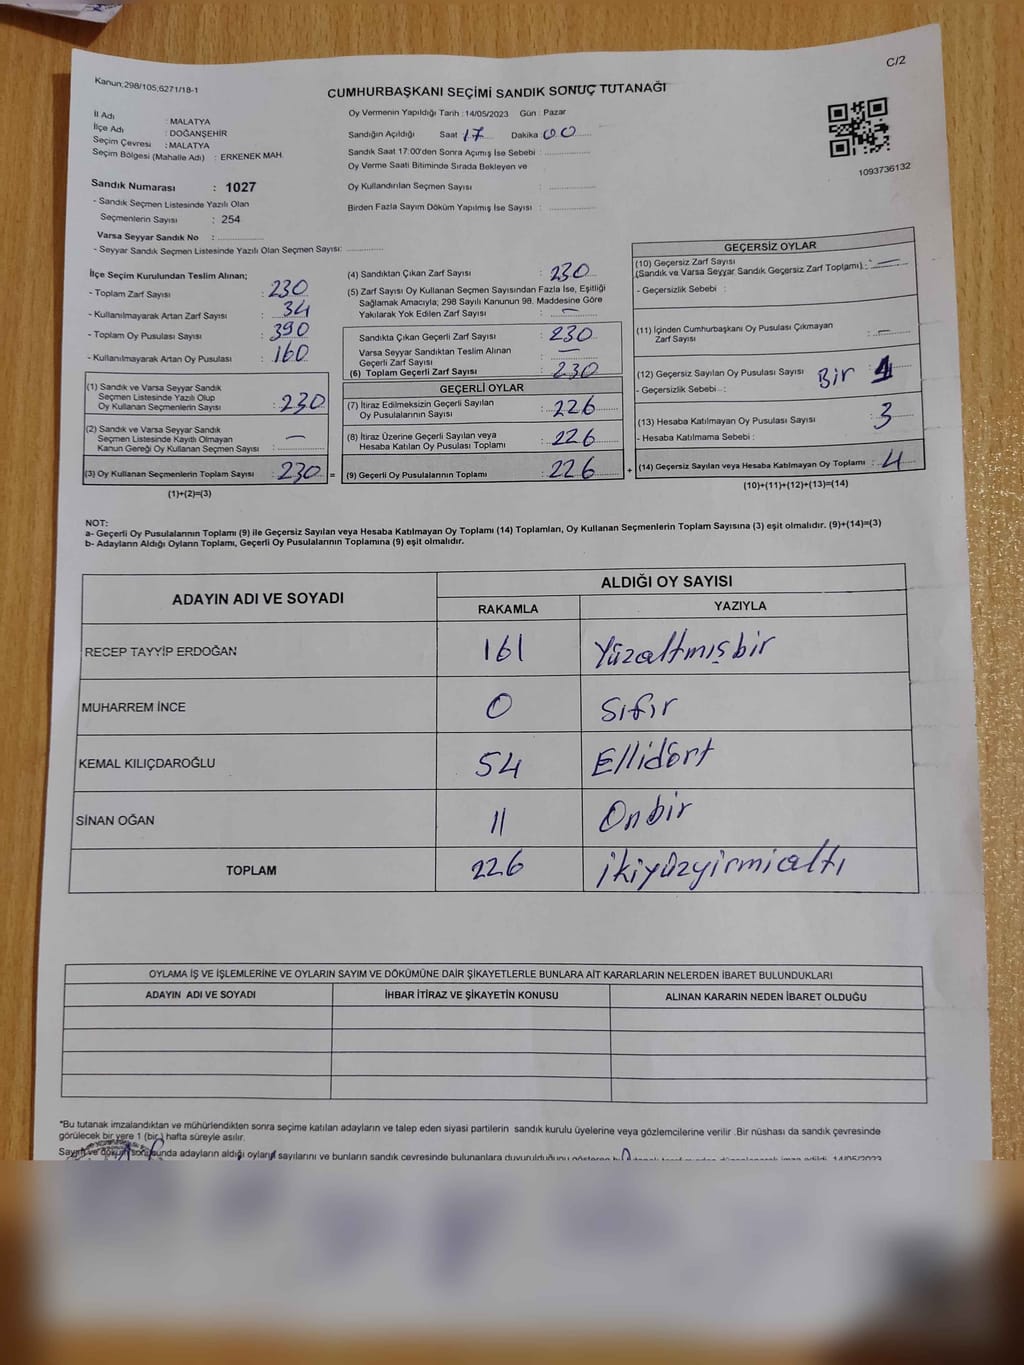 C/2
Kanun;298/105;6271/18-1
CUMHURBAŞKANI SEÇİMİ SANDIK SONUÇ TUTANAĞI
İl Adı : MALATYA
İlçe Adı : DOĞANŞEHİR
Seçim Çevresi : MALATYA
Seçim Bölgesi (Mahalle Adı) : ERKENEK MAH.
Sandık Numarası : 1027
- Sandık Seçmen Listesinde Yazılı Olan
Seçmenlerin Sayısı : 254
Varsa Seyyar Sandık No :
- Seyyar Sandık Seçmen Listesinde Yazılı Olan Seçmen Sayısı:
Oy Vermenin Yapıldığı Tarih :14/05/2023 Gün : Pazar
Sandığın Açıldığı Saat 17 Dakika 00
Sandık Saat 17:00'den Sonra Açımış İse Sebebi :
Oy Verme Saati Bitiminde Sırada Bekleyen ve
Oy Kullandırılan Seçmen Sayısı :
Birden Fazla Sayım Döküm Yapılmış İse Sayısı :
1093736132
İlçe Seçim Kurulundan Teslim Alınan;
- Toplam Zarf Sayısı : 230
- Kullanılmayarak Artan Zarf Sayısı : 34
- Toplam Oy Pusulası Sayısı : 390
- Kullanılmayarak Artan Oy Pusulası : 160
(1) Sandık ve Varsa Seyyar Sandık
Seçmen Listesinde Yazılı Olup
Oy Kullanan Seçmenlerin Sayısı : 230
(2) Sandık ve Varsa Seyyar Sandık
Seçmen Listesinde Kayıtlı Olmayan
Kanun Gereği Oy Kullanan Seçmen Sayısı : —
(3) Oy Kullanan Seçmenlerin Toplam Sayısı : 230 =
(1)+(2)=(3)
(4) Sandıktan Çıkan Zarf Sayısı : 230
(5) Zarf Sayısı Oy Kullanan Seçmen Sayısından Fazla İse, Eşitliği
Sağlamak Amacıyla; 298 Sayılı Kanunun 98. Maddesine Göre
Yakılarak Yok Edilen Zarf Sayısı : —
Sandıkta Çıkan Geçerli Zarf Sayısı : 230
Varsa Seyyar Sandıktan Teslim Alınan
Geçerli Zarf Sayısı : —
(6) Toplam Geçerli Zarf Sayısı : 230
GEÇERLİ OYLAR
(7) İtiraz Edilmeksizin Geçerli Sayılan
Oy Pusulalarının Sayısı : 226
(8) İtiraz Üzerine Geçerli Sayılan veya
Hesaba Katılan Oy Pusulası Toplamı : 226
(9) Geçerli Oy Pusulalarının Toplamı : 226 +
GEÇERSİZ OYLAR
(10) Geçersiz Zarf Sayısı
(Sandık ve Varsa Seyyar Sandık Geçersiz Zarf Toplamı) : —
- Geçersizlik Sebebi :
(11) İçinden Cumhurbaşkanı Oy Pusulası Çıkmayan
Zarf Sayısı : —
(12) Geçersiz Sayılan Oy Pusulası Sayısı : Bir 1
- Geçersizlik Sebebi :
(13) Hesaba Katılmayan Oy Pusulası Sayısı : 3
- Hesaba Katılmama Sebebi :
(14) Geçersiz Sayılan veya Hesaba Katılmayan Oy Toplamı : 4
(10)+(11)+(12)+(13)=(14)
NOT:
a- Geçerli Oy Pusulalarının Toplamı (9) ile Geçersiz Sayılan veya Hesaba Katılmayan Oy Toplamı (14) Toplamları, Oy Kullanan Seçmenlerin Toplam Sayısına (3) eşit olmalıdır. (9)+(14)=(3)
b- Adayların Aldığı Oyların Toplamı, Geçerli Oy Pusulalarının Toplamına (9) eşit olmalıdır.
ADAYIN ADI VE SOYADI ALDIĞI OY SAYISI
RAKAMLA YAZIYLA
RECEP TAYYİP ERDOĞAN 161 Yüzaltmışbir
MUHARREM İNCE 0 Sıfır
KEMAL KILIÇDAROĞLU 54 Ellidört
SİNAN OĞAN 11 Onbir
TOPLAM 226 ikiyüzyirmialtı
OYLAMA İŞ VE İŞLEMLERİNE VE OYLARIN SAYIM VE DÖKÜMÜNE DAİR ŞİKAYETLERLE BUNLARA AİT KARARLARIN NELERDEN İBARET BULUNDUKLARI
ADAYIN ADI VE SOYADI İHBAR İTİRAZ VE ŞİKAYETİN KONUSU ALINAN KARARIN NEDEN İBARET OLDUĞU
*Bu tutanak imzalandıktan ve mühürlendikten sonra seçime katılan adayların ve talep eden siyasi partilerin sandık kurulu üyelerine veya gözlemcilerine verilir .Bir nüshası da sandık çevresinde
görülecek bir yere 1 (bir) hafta süreyle asılır.
Sayım ve döküm sonunda adayların aldığı oyların sayılarını ve bunların sandık çevresinde bulunanlara duyurulduğunu gösteren